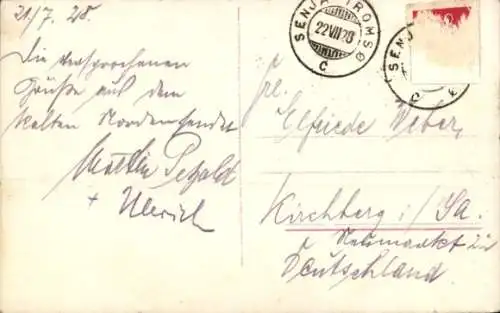 21/7. 28.
Die versprochenen
Grüße aus dem
kalten Norden sendet
Martin Petzold
+ Ulrich
SENJA TROMSØ
22 VII 28
C
SENJ
Frl.
Elfriede Weber,
Kirchberg i/Sa.
Neumarkt
Deutschland